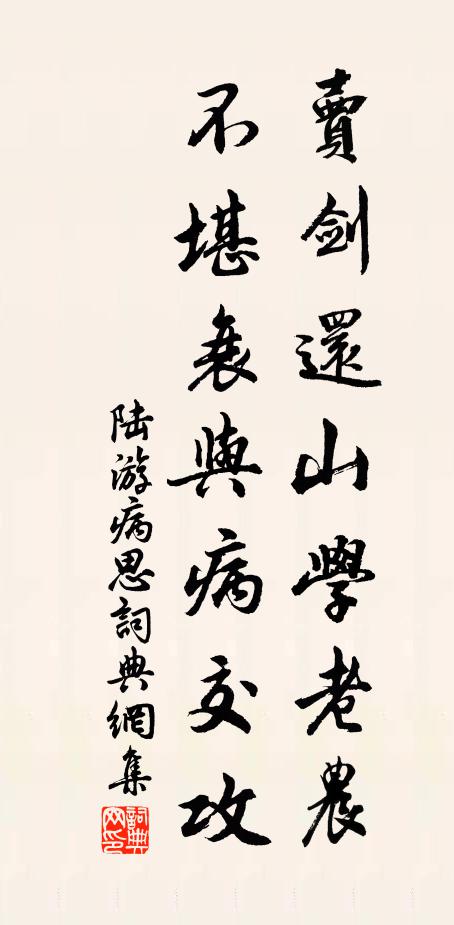 賣劍還山學老農
不堪衰與病交攻
陆游病思詞典網集
詞典網印